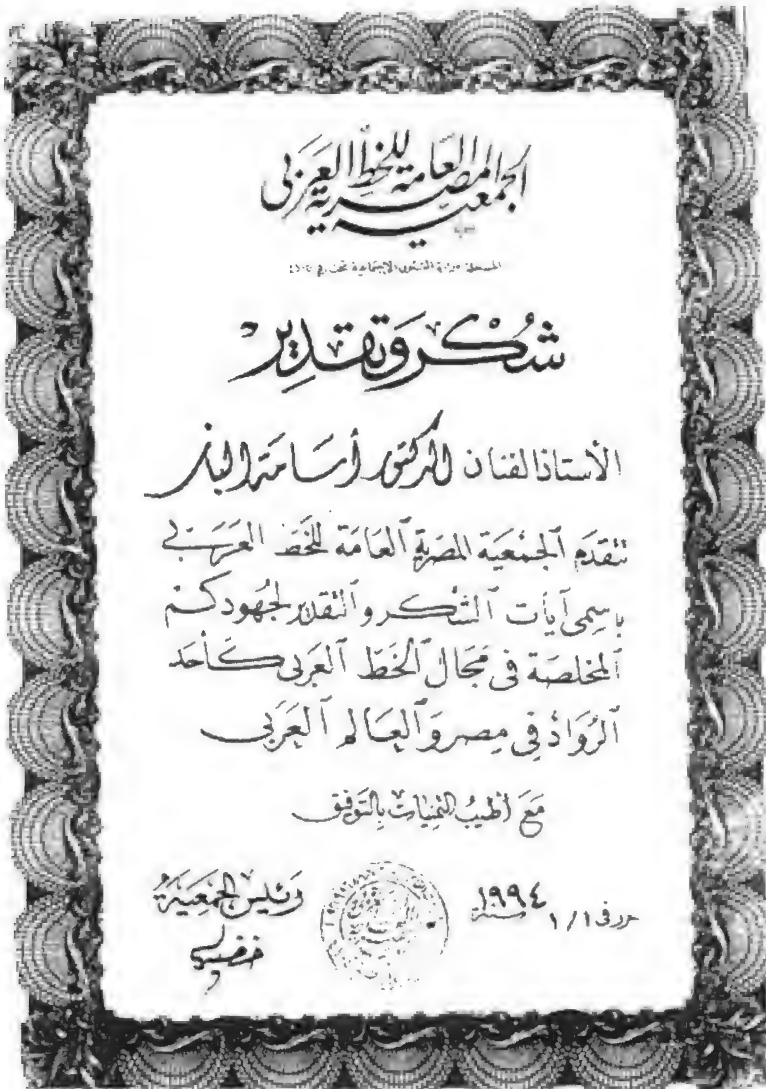 الجمعية المصرية العامة للخط العربي
شكر وتقدير
الأستاذ الفنان الدكتور أسامة الباز
تتقدم الجمعية المصرية العامة للخط العربي
بأسمى آيات الشكر والتقدير لجهودكم
المخلصة في مجال الخط العربي كأحد
الرواد في مصر والعالم العربي
مع أطيب التمنيات بالتوفيق
حرر في ١/١ سنة ١٩٩٤
رئيس الجمعية
خضير